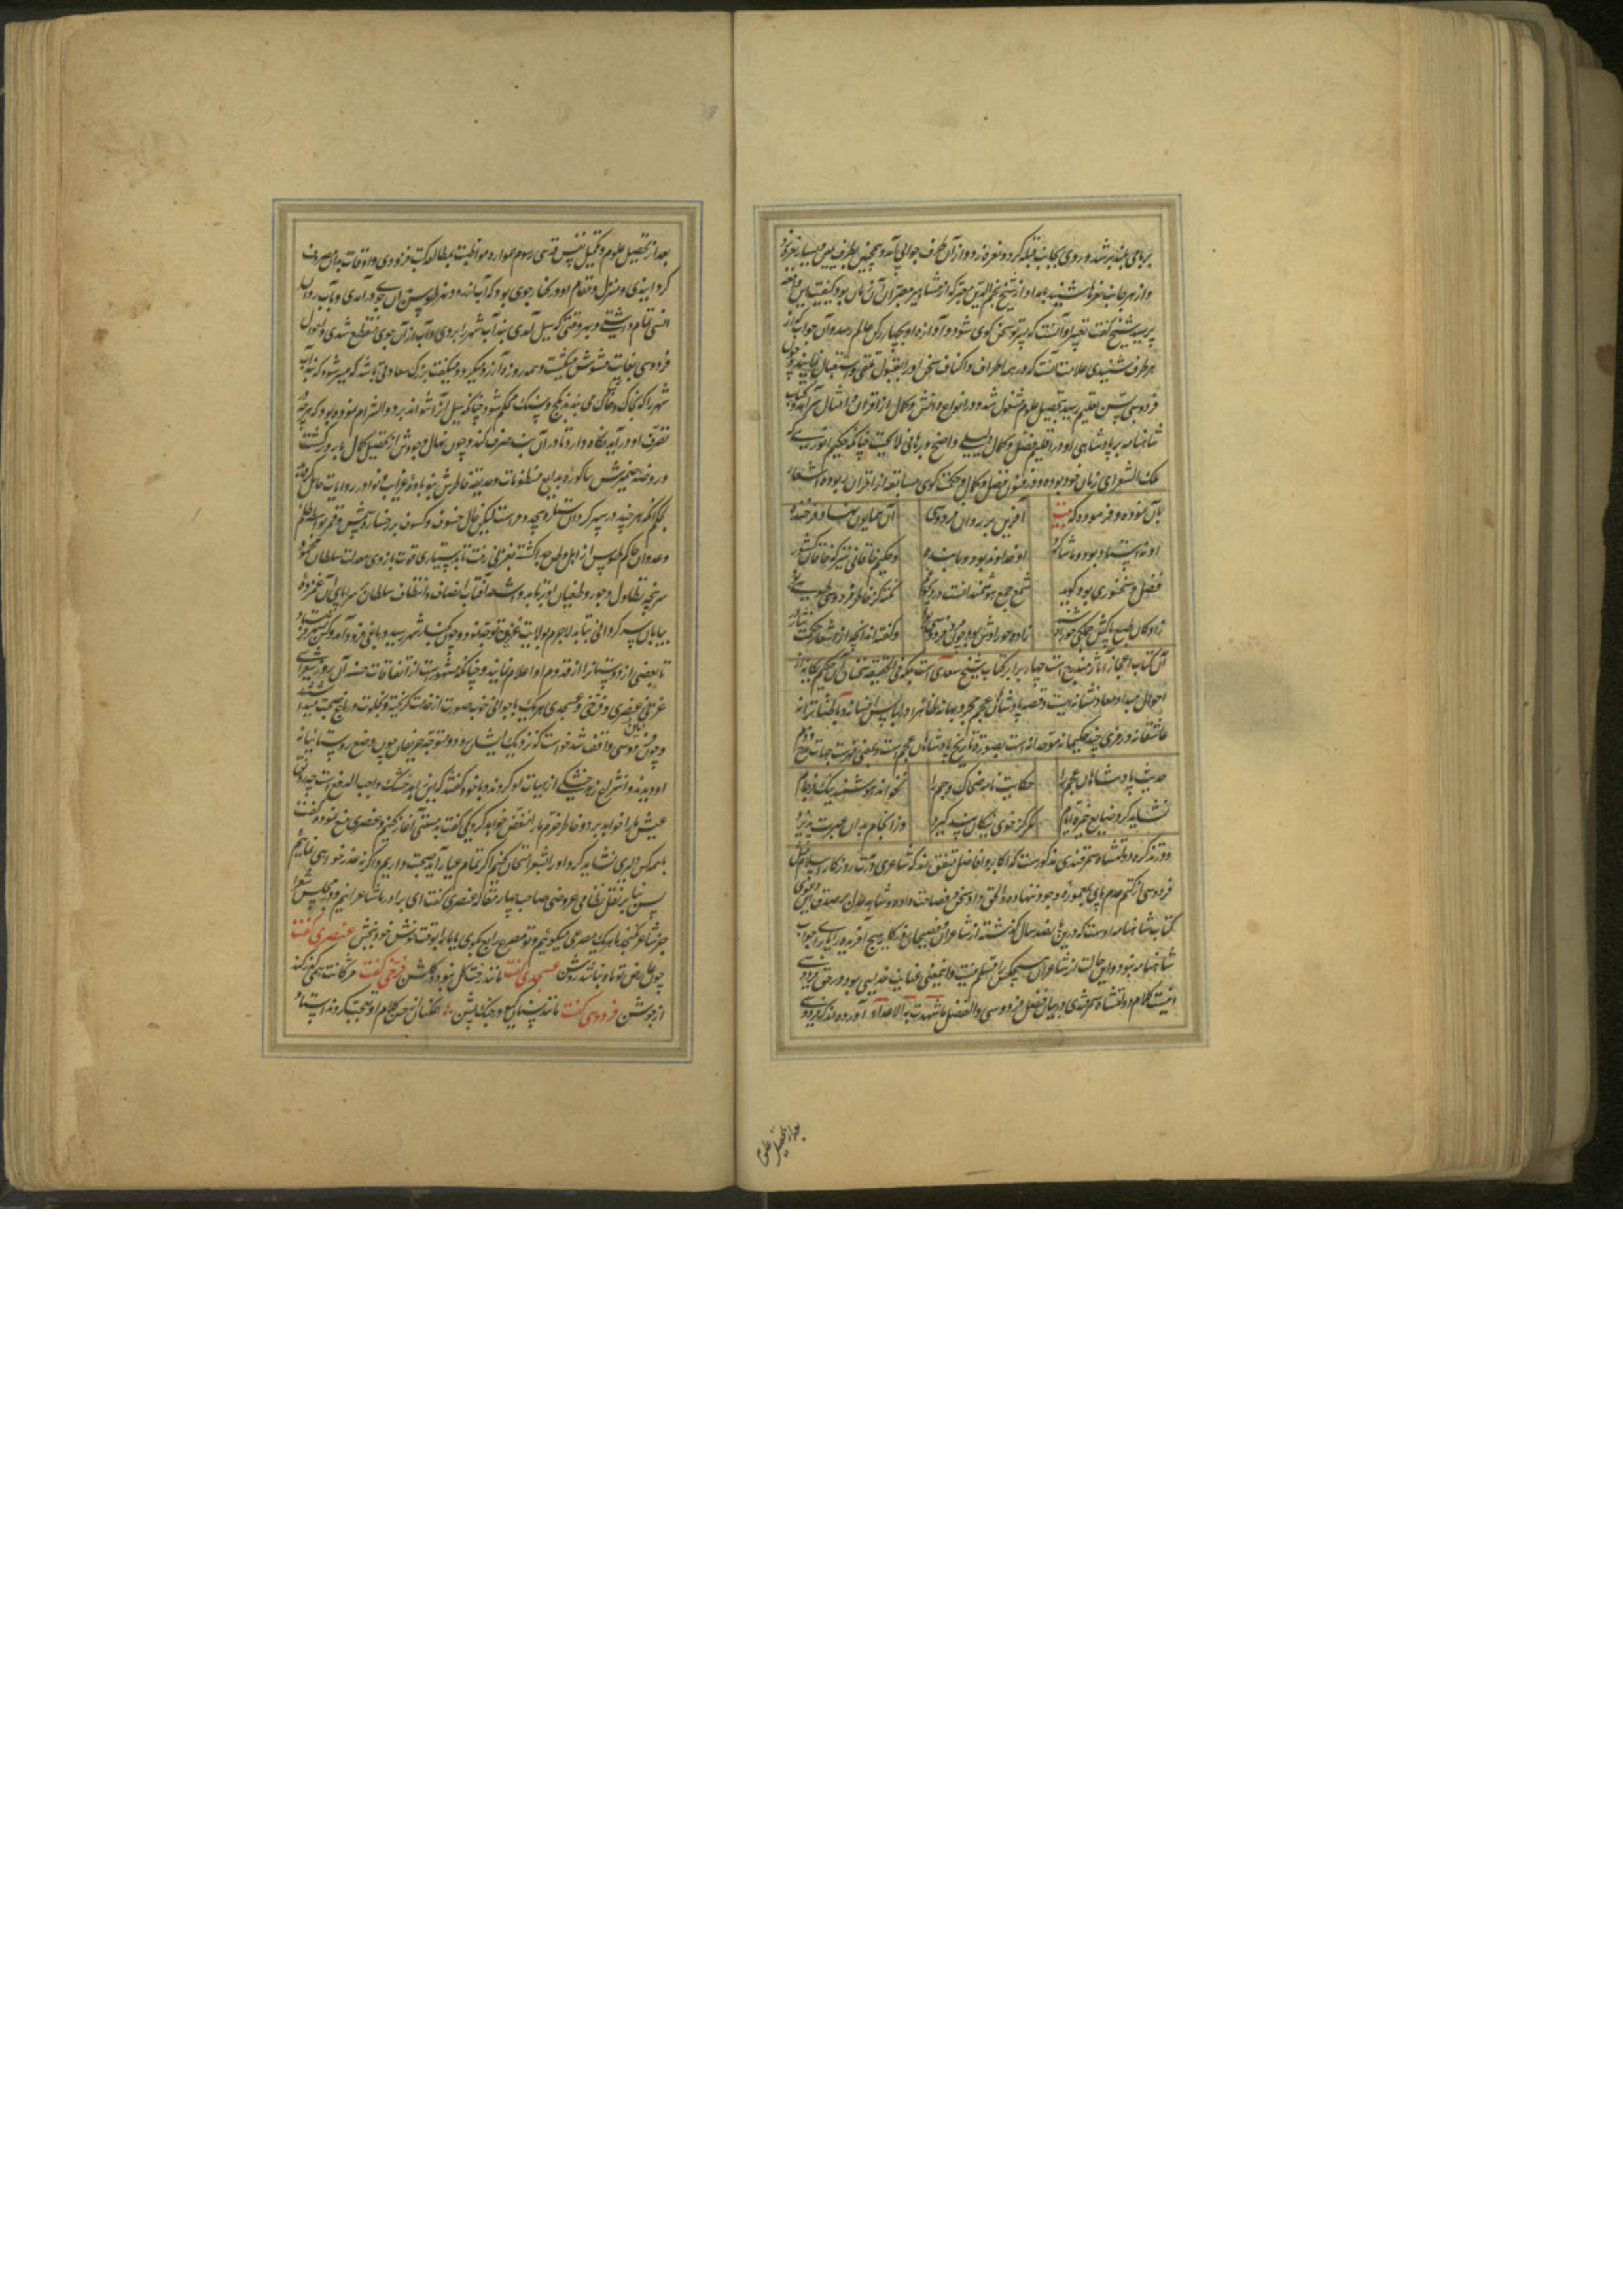 بربامی بلند بر شد و روی بجانب قبله کرد و نعره زد و از آن طرف جوابی آمد و همچنین بطرف یمین و یسار نعره زد
و از هر جانب نعرها شنید بامداد از شیخ نجم الدین معبر که از مشاهیر معبران آن زمان بود کیفیت این واقعه
پرسید شیخ گفت تعبیر او آنست که پسر تو سخن کوی شود و آوازه او بچهار رکن عالم رسد و آن جواب که از
هر طرف شنیدی علامت آنست که در همه اطراف و اکناف سخن او را بقبول تلقی و استقبال نمایند و چون
فردوسی بسن تعلیم رسید بتحصیل علوم مشغول شد و در انواع دانش و کمال از اقران و امثال سرآمد و کتاب
شاهنامه بر پادشاهی او در اقلیم فضل و کمال دلیلی واضح و برهانی لایحست چنانکه حکیم انوری که
ملک الشعرای زمان خود بوده و در فنون فضل و کمال و حکمت کوی مسابقه از اقران ربوده اشعار
بآن نموده و فرموده که بیت
آفرین بر روان فردوسی
آن همایون نهاد فرخنده
او نه استاد بود و ما شاکرد
او خداوند بود و ما بنده
و حکیم خاقانی نیز که خاقان کشور
فضل و سخنوری بود کوید
شمع جمع هوشمندانست در دیجور غم
نکته کز خاطر فردوسی طوسی بود
زادکان طبع پاکش جملکی حوراوشند
زاده حوراوش بود چون مرد فردوسی بود
و گفته اند آنچه از اشعار حکمت شعار
آن کتاب اعجاز آثار منتخبست چهار برابر کتاب شیخ سعدیست بلکه فی الحقیقه سخنان آن حکیم یکانه از
احوال مبدا و معاد نشانه ایست و قصه پادشاهان عجم مجرد بهانه ظاهرا در لباس افسانه و باطنا ترانه
عاشقانه و رمزی چند حکیمانه موحدانه است بصورة تاریخ پادشاهان عجم است و بمعنی فهرست جهات مدح و ذم
حدیث پادشاهان عجم را
حکایت نامه ضحاک و جم را
نخواند هوشمند نیک فرجام
نشاید کرد ضایع خیره ایام
مکر کز خوی نیکان پند گیرد
وز انجام بدان عبرت پذیرد
و در تذکره دولتشاه سمرقندی مذکورست که اکابر و افاضل متفق اند که شاعری در مدت روزکار اسلام مثل
فردوسی از کتم عدم پای بمعموره وجود ننهاده و الحق داد سخنوری و فصاحت داده و شاهد عدل بر صدق این دعوی
کتاب شاهنامه اوست که درین پانصد سال گذشته از شاعران و فصیحان روزکار هیچ آفریده را یارای جواب
شاهنامه نبود و این حالت از شاعران هیچکس را مسلم نیست و اینمعنی عنایت خدایی بود در حق فردوسی
اینست کلام دولتشاه سمرقندی در بیان فضل فردوسی و الفضل ما شهدت به الاعداء آورده اند که فردوسی
بعد از تحصیل علوم
بعد از تحصیل علوم و تکمیل نفس قدسی رسوم همواره مواظبت بمطالعه کتب فرمودی و اوقات بدان مصروف
کردانیدی و منزل و مقام او در کنار جوی بود که آب از رود نهر طوس در آن جوی درآمدی و بآب روان
انسی تمام داشتی و هر وقتی که سیل آمدی بند آب شهر را بردی و آب از آن جوی منقطع شدی و احوال
فردوسی بغایت مشوش میکشت و همه روزه آرزو میکرد و میگفت بزرک سعادتی باشد که میسر شود که بند آب
شهر را که بخاک و خاشاک می بندند بگچ و سنک محکم شود چنانکه سیل آنرا نتواند برد و التزام نموده بود که هر چه در
تصرف او درآید نکاه دارد تا در آن بند صرف کند و چون نهال وجودش از تحصیل کمال بارور گشت
و روضه ضمیرش بباکوره بدایع منظومات و حدیقه خاطرش بنوباوه غرایب و نوادر روایات حامل گردید
بحکم آنکه هر چند در سپهر گردان ستاره بیحد و مر است لیکن خال خسوف و کسوف بر رخسار شمس و قمر بود از ظلم
و عدوان حاکم طوس از اهل و وطن جدا گشته بغزنی رفت تا بدستیاری قوت بازوی معدلت سلطان محمود
سرپنجه تطاول و جور و طغیان او برتابد و اشعه آفتاب انصاف و انتظاف سلطان بر سراپای آن غمزده
بیابان سرگردانی بتابد لاجرم بولایت غزنین توجه نمود و چون بکنار شهر رسید در باغی فرود آمد و کس بشهر فرستاد
تا بعضی از دوستانرا از قدوم او اعلام نمایند و چنانکه مشهورست از اتفاقات حسنه آن روز شعرای
غزنی عنصری و فرخی و عسجدی هر یک با جوانی خوب صورت از خدمت گریخته و بخلوت در باغ صحبت میداشتند
و چون فردوسی واقف شد خواست که نزدیک ایشان رود و متوجه حریفان چون وضع روستائیانه
او دیدند و انشراح زهد خشکی از هیات او کردند با خود گفتند که این زاهد خشک واجب الدفعست چه رونق
عیش ما را خواهد برد و خاطر خرم ما را منغض خواهد کرد یکی گفت بدمستی آغاز کنیم عنصری منع نمود و گفت
با همه کس دلیری نشاید کرد او را بشعر امتحان کنیم اگر تمام عیار آید صحبت داریم و اگر نه عذر خواهی نمائیم
پس بنا بر نقل نظامی عروضی صاحب چهار مقاله عنصری گفت ای برادر ما شاعرانیم و در مجلس شعرا
جز شاعر نگنجد ما هر یک مصرعی میگوئیم و تو مصرع رابع بگوی با ما بر ابوقت خوش خود ببخش عنصری گفت
چون عارض تو ماه نباشد روشن عسجدی گفت مانند رخت گل نبود در گلشن فرخی گفت مژگانت همی گذر کند
از جوشن فردوسی گفت مانند سنان گیو در جنگ پشن همکنان از حسن کلام او تعجب کردند استاد